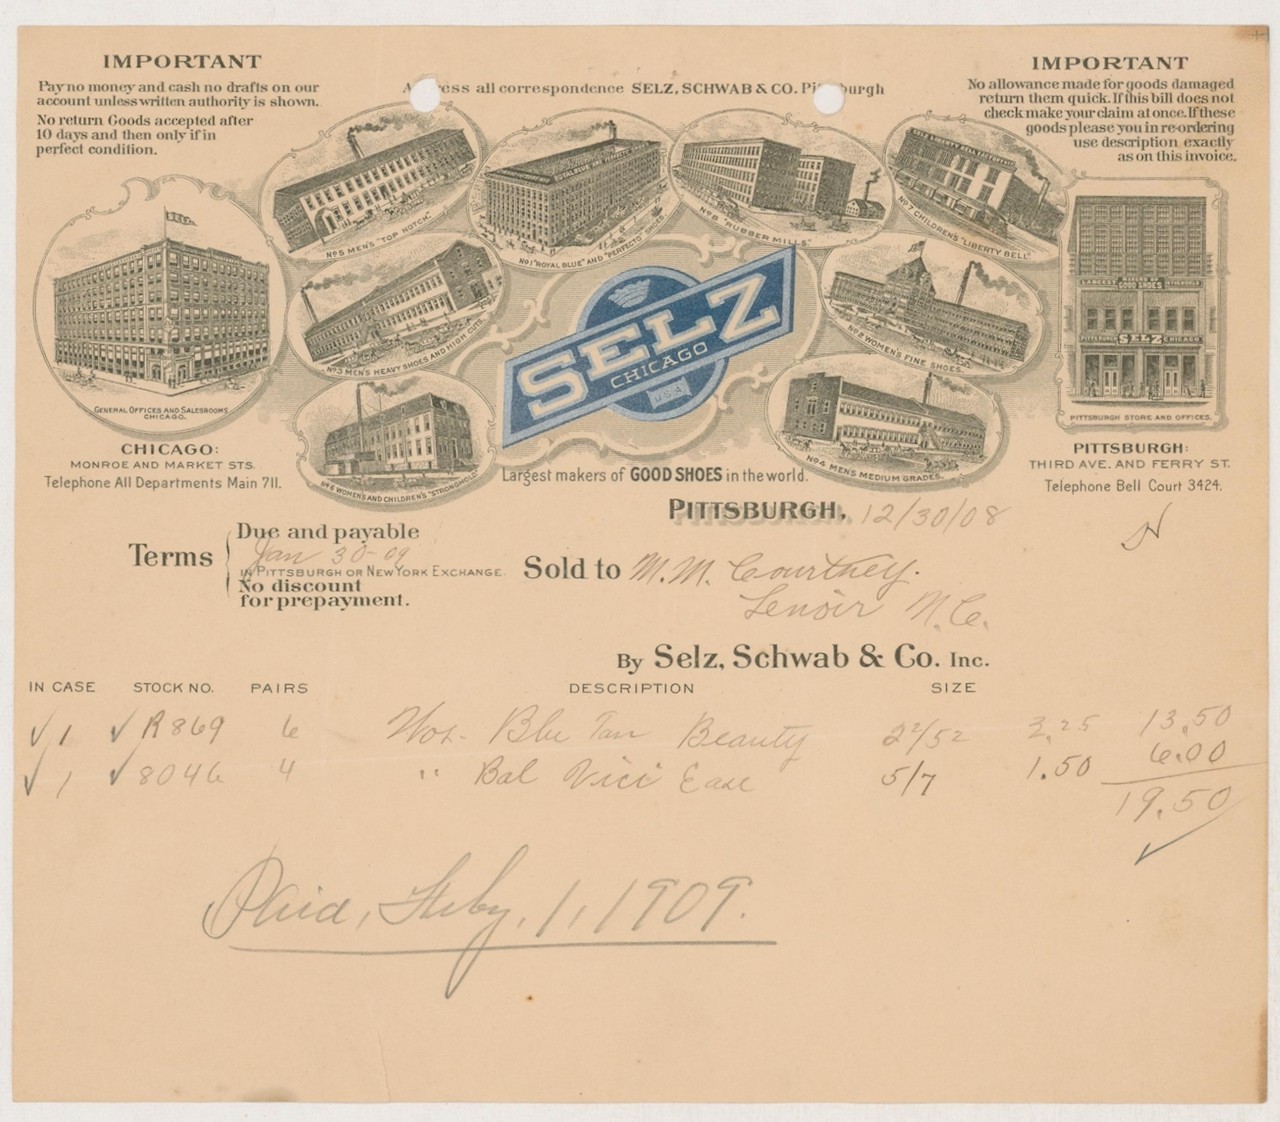 IMPORTANT
Pay no money and cash no drafts on our
account unless written authority is shown.
No return Goods accepted after
10 days and then only if in
perfect condition.
Address all correspondence SELZ, SCHWAB & CO. Pittsburgh
IMPORTANT
No allowance made for goods damaged
return them quick. If this bill does not
check make your claim at once. If these
goods please you in re-ordering
use description exactly
as on this invoice.
SELZ
GENERAL OFFICES AND SALESROOMS
CHICAGO.
CHICAGO:
MONROE AND MARKET STS.
Telephone All Departments Main 711.
No 5 MEN'S "TOP NOTCH"
No 1 "ROYAL BLUE" AND "PERFECTO" SHOES
No 8 "RUBBER MILLS"
No 7 CHILDREN'S "LIBERTY BELL"
No 3 MEN'S HEAVY SHOES AND HIGH CUTS
No 2 WOMEN'S FINE SHOES.
No 6 WOMEN'S AND CHILDREN'S "STRONGHOLD"
No 4 MENS MEDIUM GRADES.
SELZ
CHICAGO
U.S.A.
Largest makers of GOOD SHOES in the world.
GOOD SHOES
PITTSBURG SELZ CHICAGO
PITTSBURGH STORE AND OFFICES.
PITTSBURGH:
THIRD AVE. AND FERRY ST.
Telephone Bell Court 3424.
PITTSBURGH, 12/30/08
Terms
Due and payable
Jan 30-09
IN PITTSBURGH OR NEW YORK EXCHANGE.
No discount
for prepayment.
Sold to M. M. Courtney.
Lenoir N.C.
By Selz, Schwab & Co. Inc.
IN CASE STOCK NO. PAIRS DESCRIPTION SIZE
✓ 1 ✓ R869 6 Wos. Blu Tan Beauty 2½/5½ 2.25 13.50
✓ 1 ✓ 8046 4 " Bal Vici Ease 5/7 1.50 6.00
19.50
✓
Paid, Feby, 1, 1909.